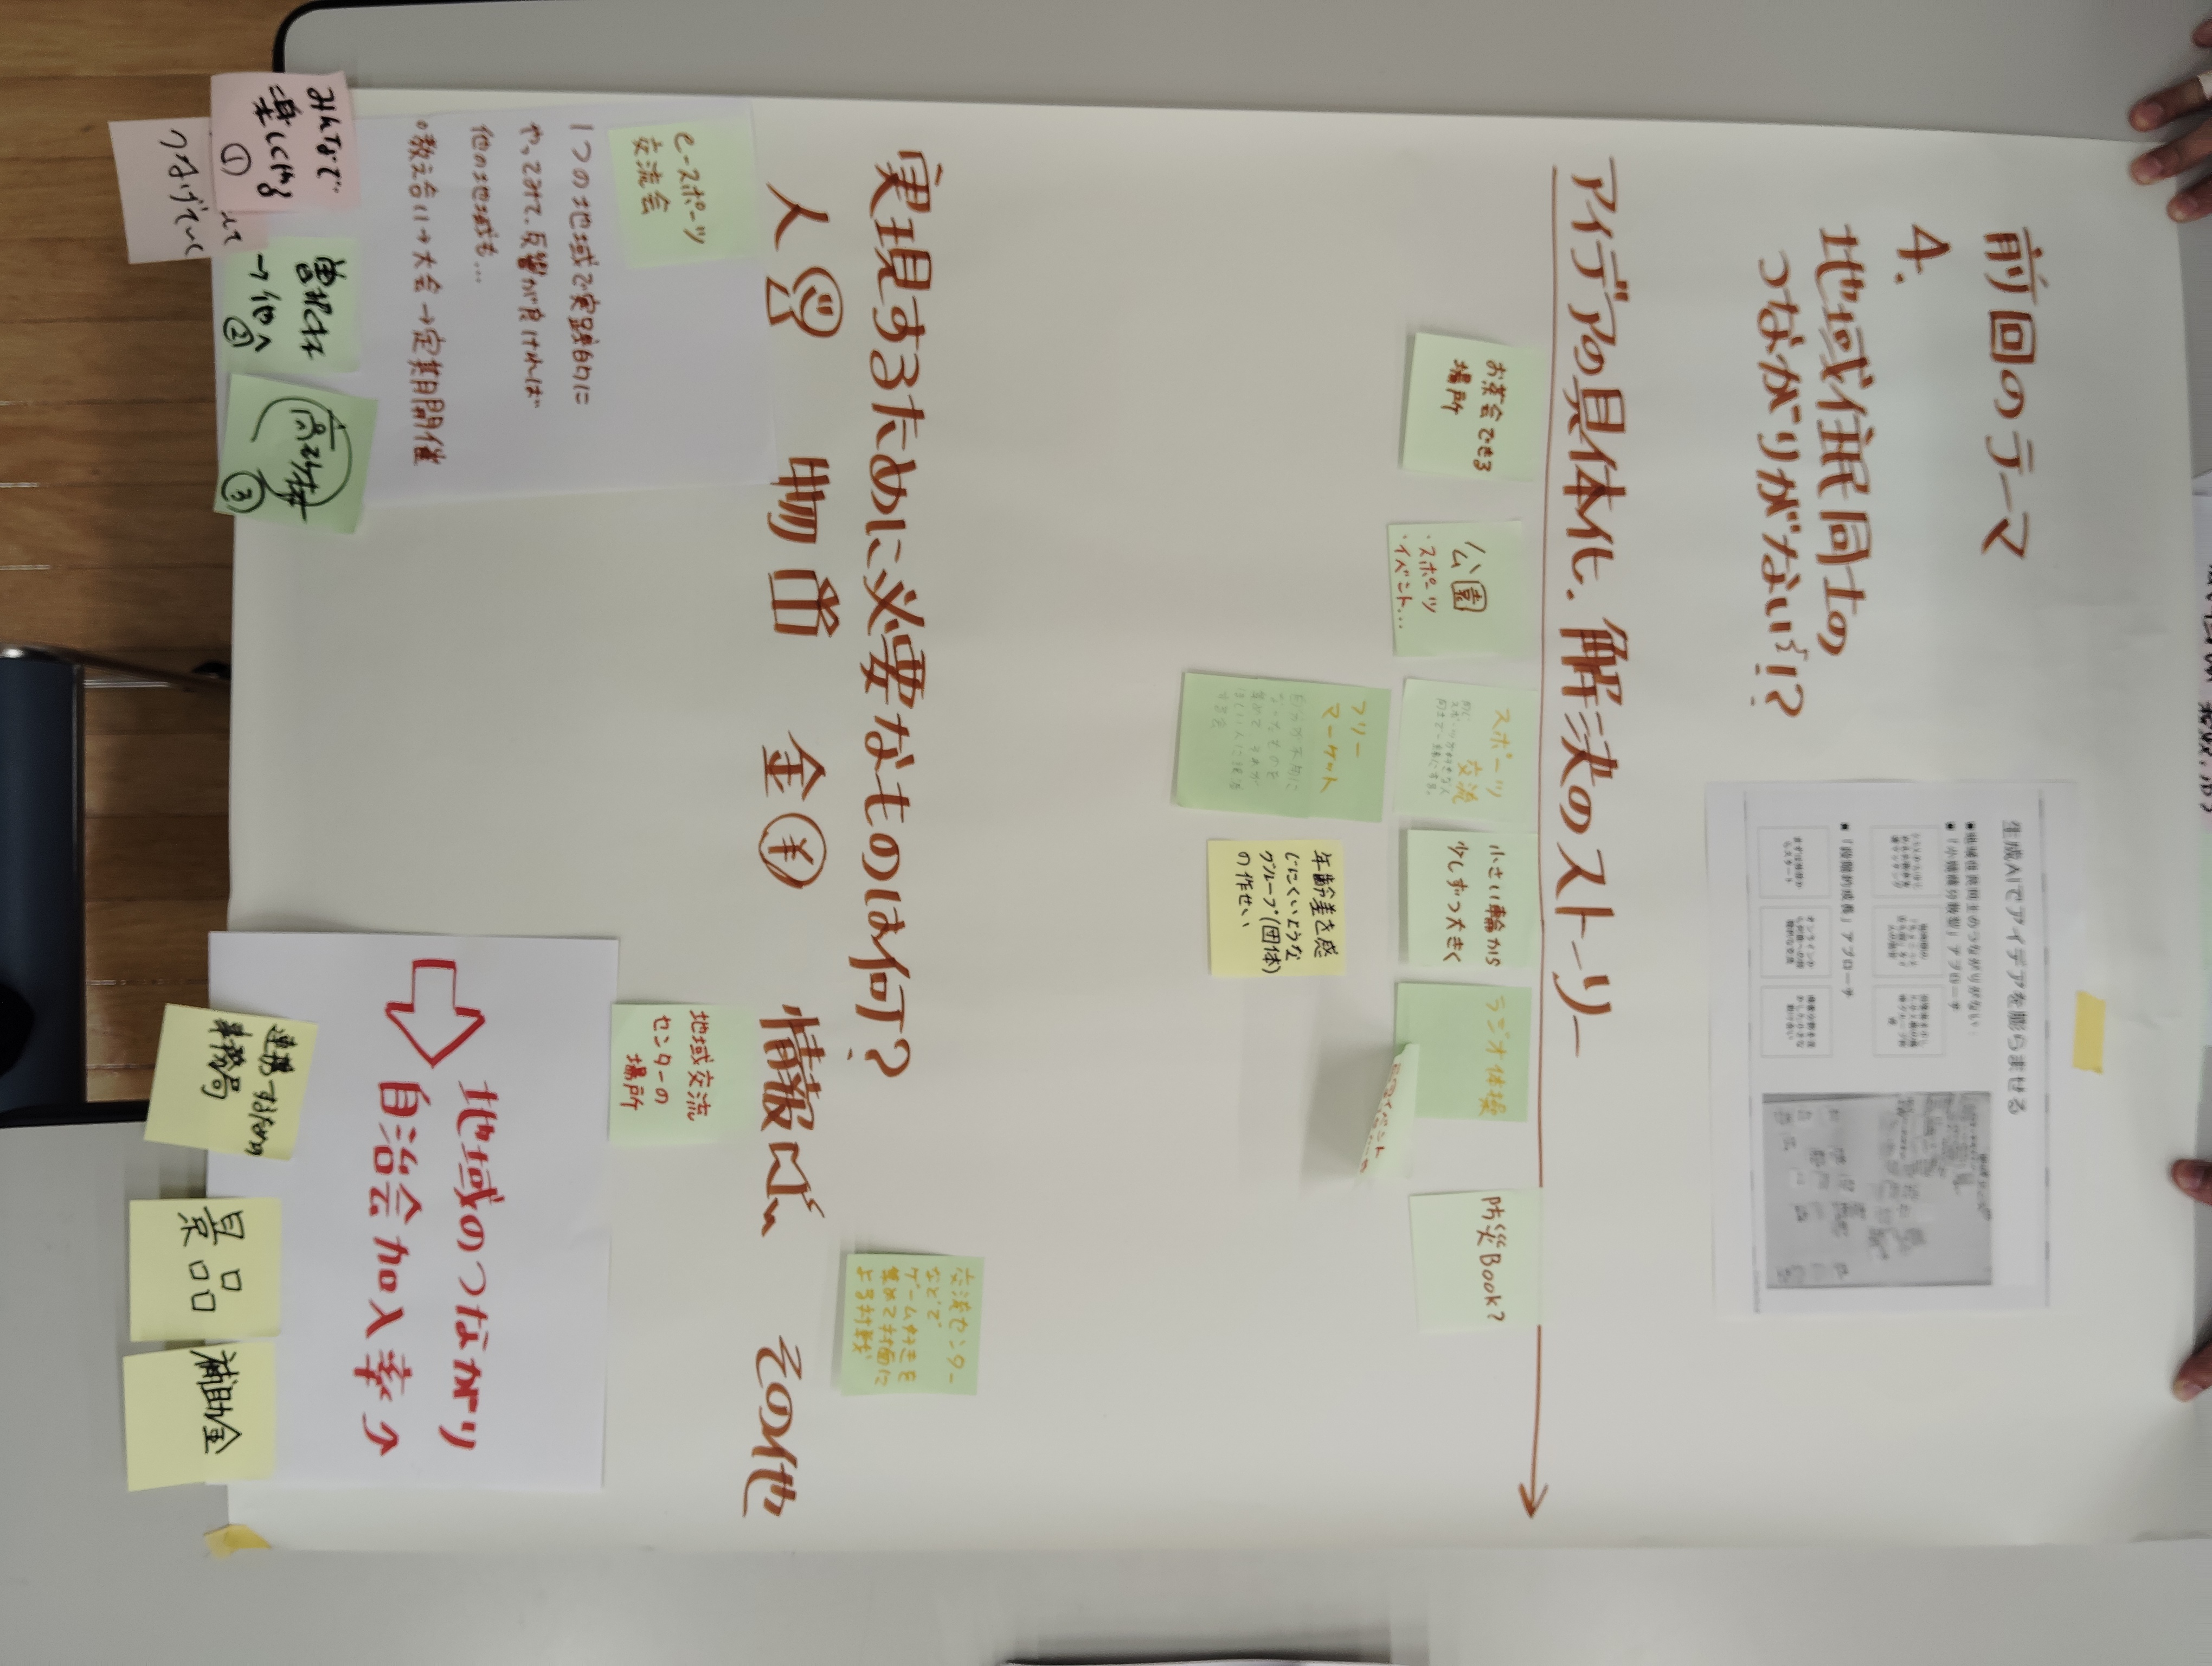 前回のテーマ
4.
地域住民同士の
つながりがない!?
生成AIでアイデアを膨らませる
地域住民同士のつながりがない
「小規模分散型」アプローチ
「段階的成長」アプローチ
アイデアの具体化. 解決のストーリー
お茶会できる
場所
公園
・スポーツ
・イベント…
スポーツ
交流
小さい輪から
少しずつ大きく
ラジオ体操
防災Book?
フリー
マーケット
自分が不用に
なったものを
集めて それが
ほしい人に渡す
年齢差を感
じにくいような
グループ(団体)
の作せい
実現するために必要なものは何?
交流センター
などで
ゲーム好きを
集めて対面に
よる対戦
人
物
金 ¥
情報
その他
e-スポーツ
交流会
1つの地域で実践的に
やってみて、反響が良ければ
他の地域も…
教え合い→大会→定期開催
地域交流
センターの
場所
地域のつながり
自治会加入率
みんなで
楽しくやる
①
つなげていく
→他へ
②
③
事務局
景品
補助金